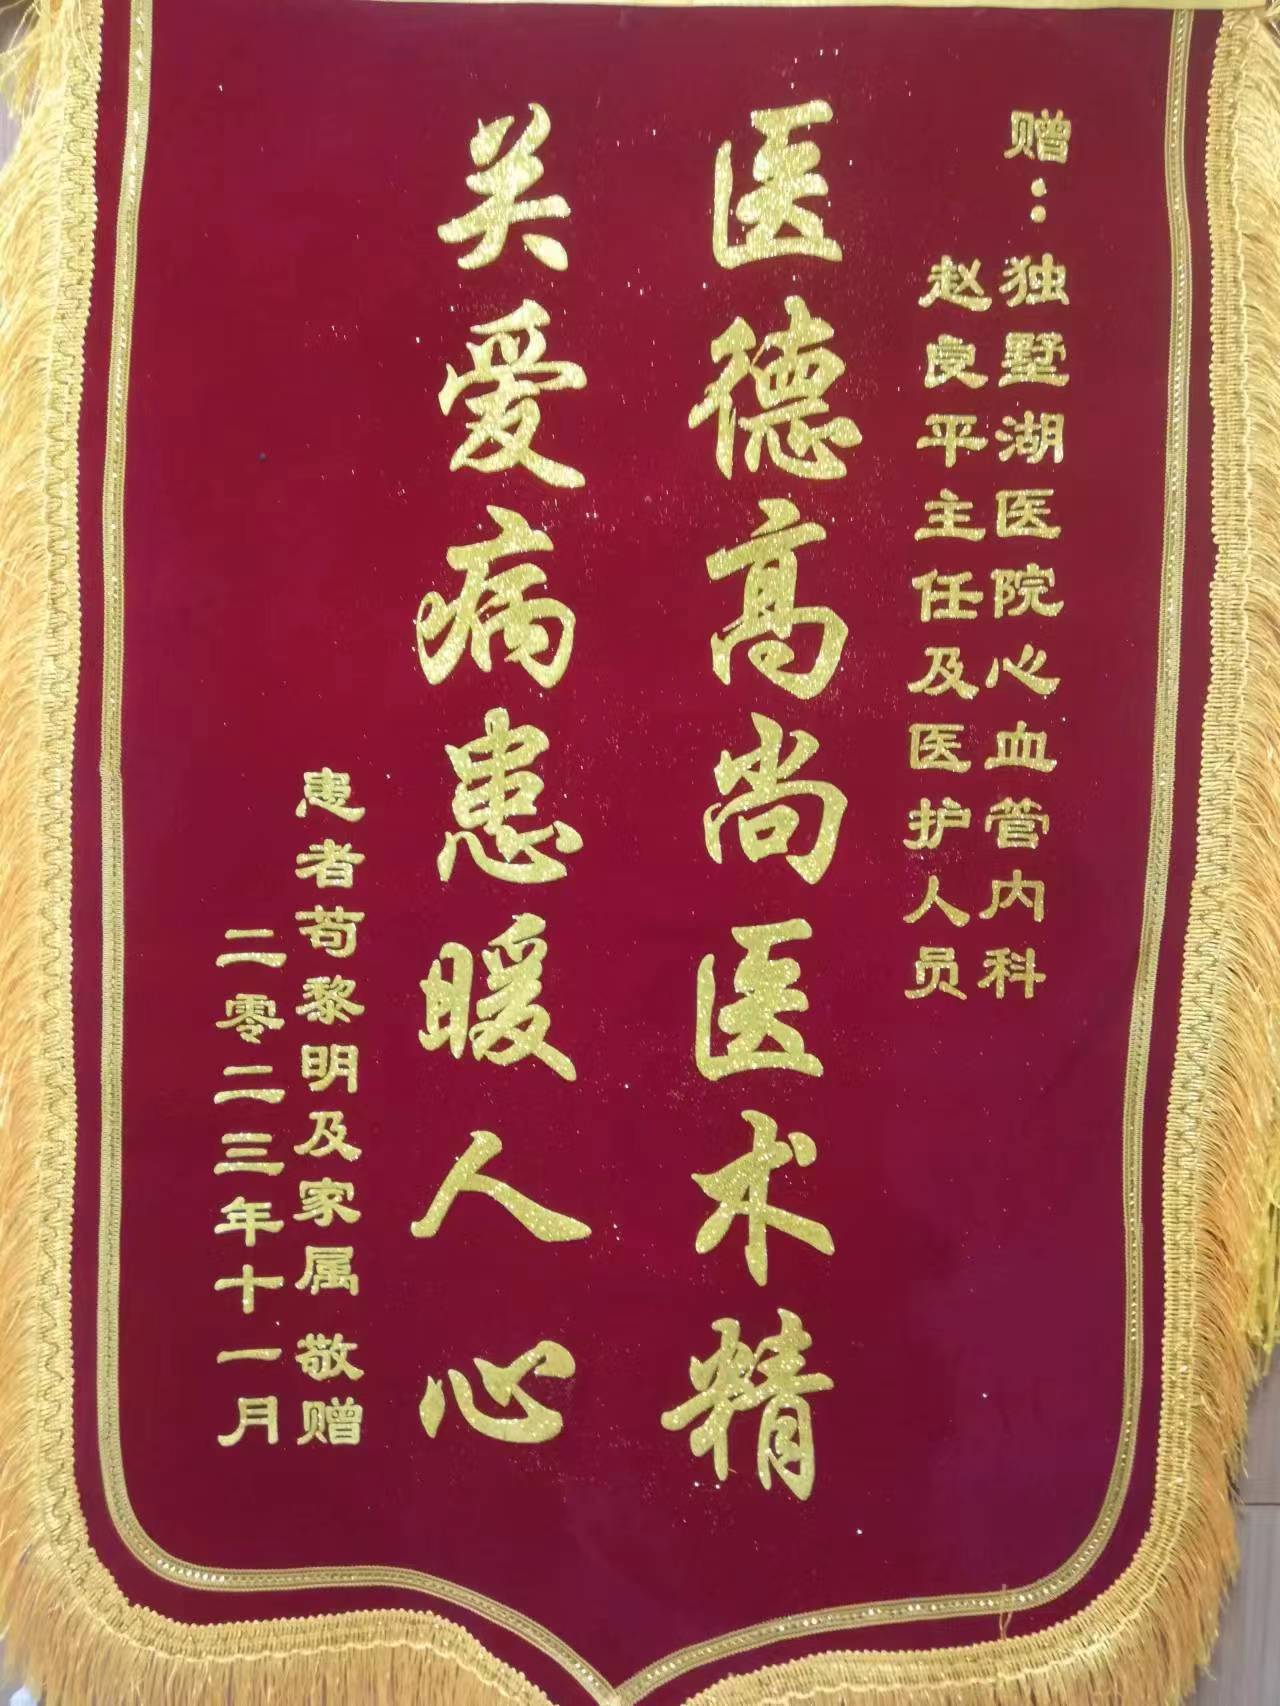 赠：独墅湖医院心血管内科
赵良平主任及医护人员
医德高尚医术精
关爱病患暖人心
患者苟黎明及家属 敬赠
二零二三年十一月